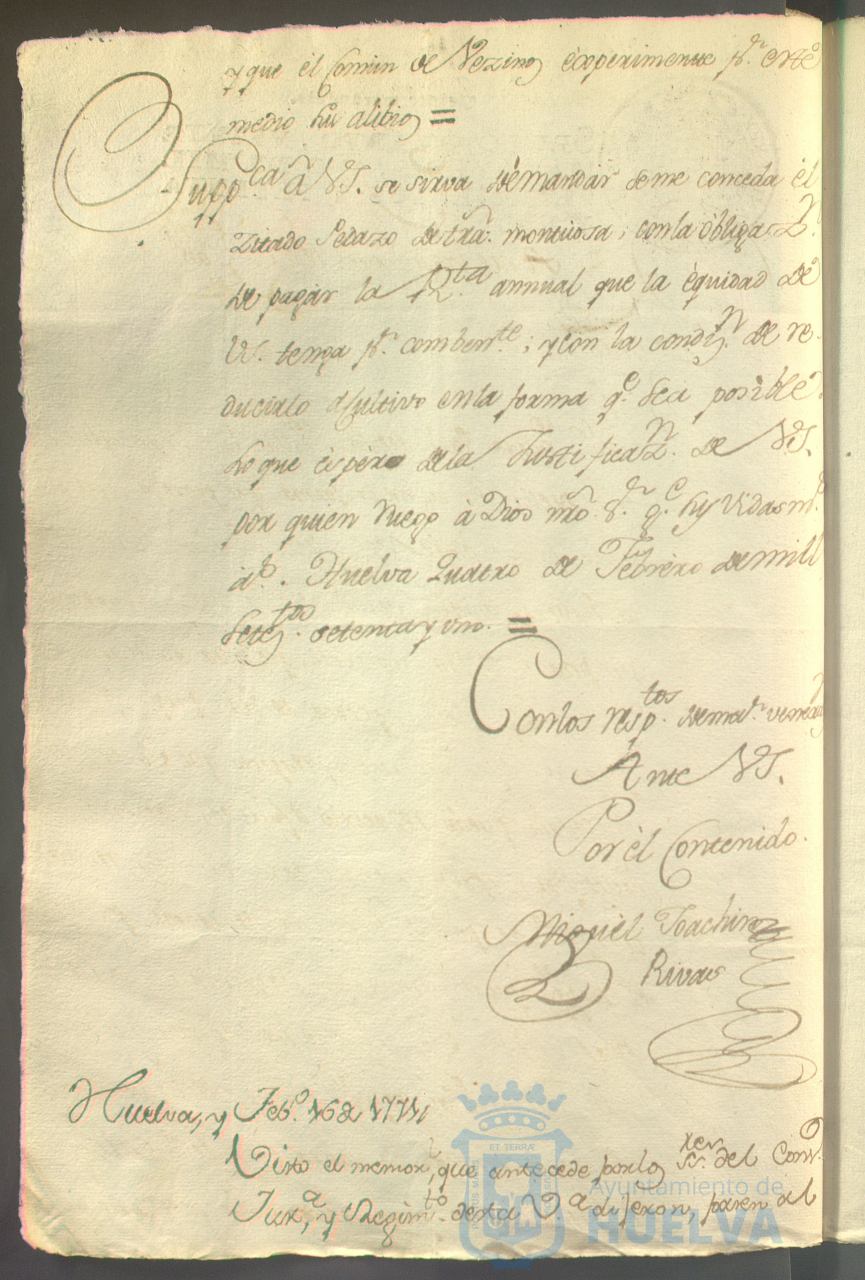 y que el Comun de Vezinos experimente pr. este
medio su alibio =
Suppca. â VS. se sirva demandar seme conceda él
zitado Pedazo de trrâ. montuosa, con la obligazn.
de pagar la Rta. annual que la èquidad de
VS. tenga pr. combente.; y con la condizn. de re-
ducirlo a Cultivo en la forma qe. sea posible
lo que espero de la Justificazn. de VS.
por quien Ruego à Dios nrô Sr. ge. sus Vidas ms.
as. Huelva Quatro de Febrero de mill
setezttos. setenta y uno. =
Con los resptos. de mor. veneran
Ante VS.
Por èl Contenido.
Miguèl Joachin
Rivas
Huelva, y Febo. 16 de 1771,
Visto el memorl, que antecede por los Sres. del Conso.
Jusa, y Regimto. desta Va. dijeron, pasen al
ET TERRÆ
Ayuntamiento de
HUELVA